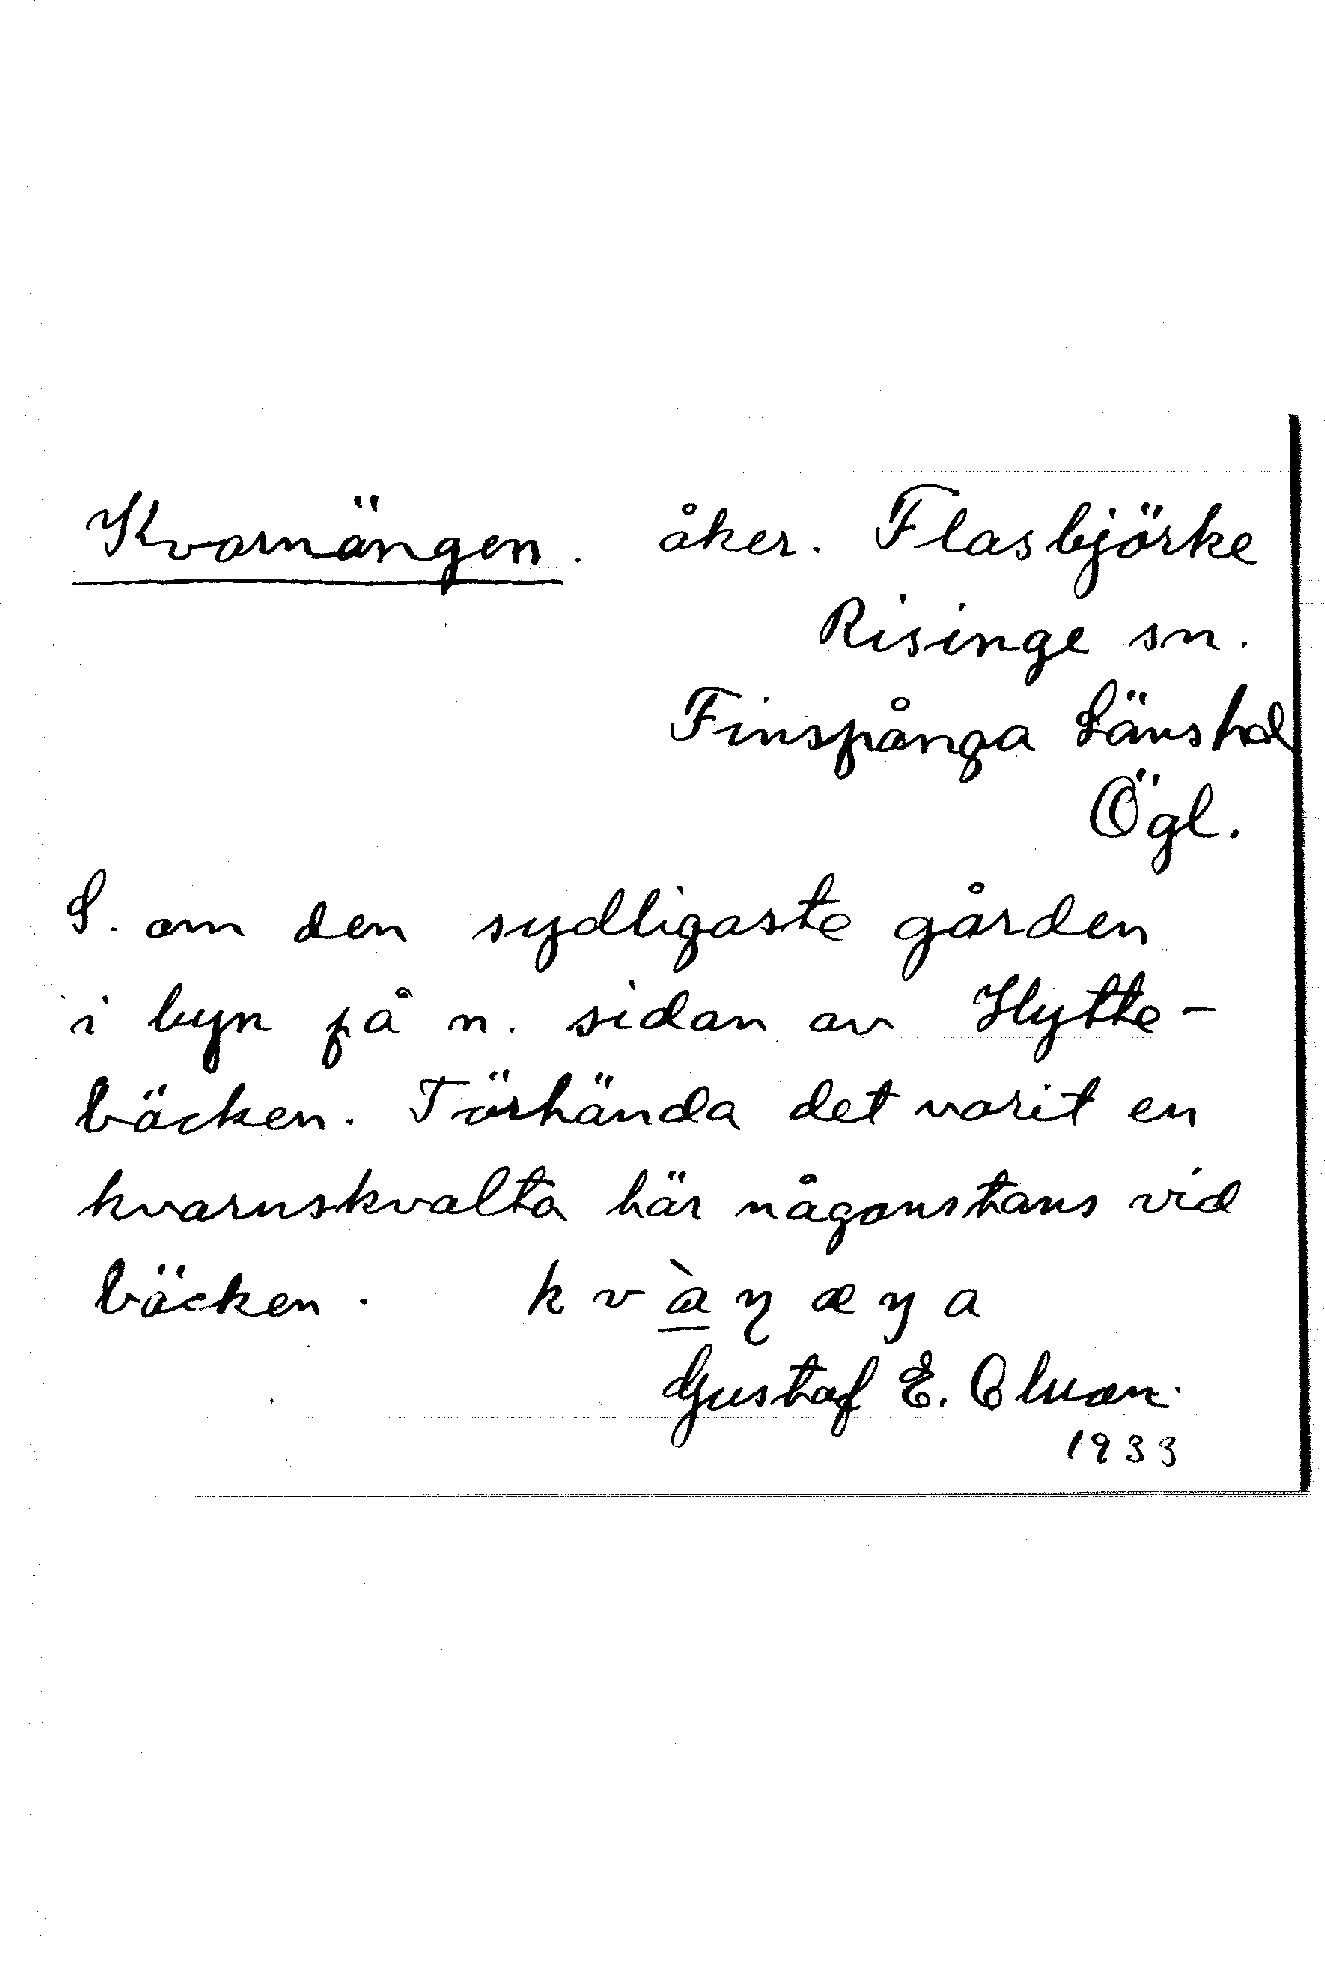 Kvarnängen. åker. Flasbjörke
Risinge sn.
Finspånga Länshd
Ögl.
S. om den sydligaste gården
i byn på n. sidan av Hytte-
bäcken. Törhända det varit en
kvarnskvalta här någonstans vid
bäcken.
Gustaf E.
1933